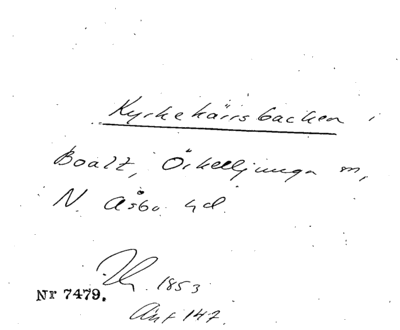 Kyrkekärrsbacken i
Boalt, Örkelljunga sn,
N. Åsbo hd.
1853
Nr 7479.
Akt 147.